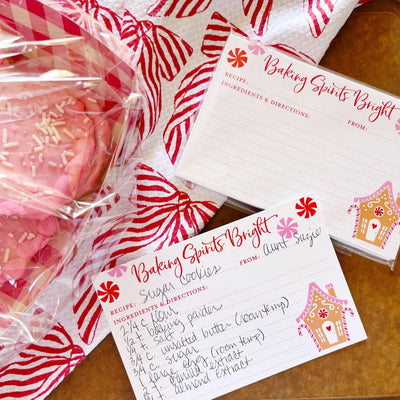 Baking Spirits Bright
RECIPE:
FROM:
INGREDIENTS & DIRECTIONS:
Baking Spirits Bright
RECIPE: Sugar Cookies FROM: Aunt Suzie
INGREDIENTS & DIRECTIONS:
2 1/4 C flour
1/2 t. baking powder
1/4 t. salt
3/4 C unsalted butter (room temp)
3/4 C sugar
1 large egg (room temp)
t. vanilla extract
t. almond extract